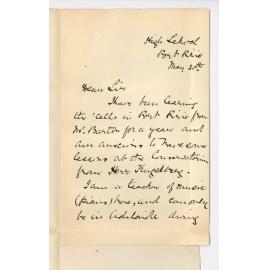 High School
Port Pirie
May 30th
Dear Sir
I have been learning
the 'cello in Port Pirie from
Mr. Barton for a year and
am anxious to have some
lessons at the Conservatorium
from Herr Kugelberg.
I am a teacher of music
(piano) here, and can only
be in Adelaide during